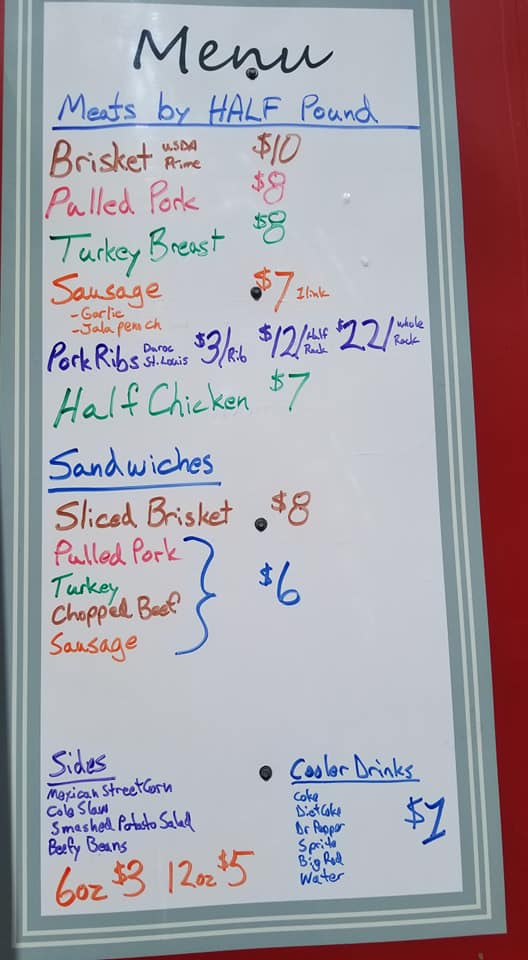 Menu
Meats by HALF Pound
Brisket USDA Prime $10
Pulled Pork $8
Turkey Breast $8
Sausage $7 1link
-Garlic
-Jalapeno ch
Pork Ribs Duroc St. Louis $3/Rib $12/Half Rack $22/Whole Rack
Half Chicken $7
Sandwiches
Sliced Brisket $8
Pulled Pork
Turkey
Chopped Beef
Sausage
$6
Sides
Mexican Street Corn
Cole Slaw
Smashed Potato Salad
Beefy Beans
6oz $3 12oz $5
Cooler Drinks
Coke
Diet Coke
Dr Pepper
Sprite
Big Red
Water
$1